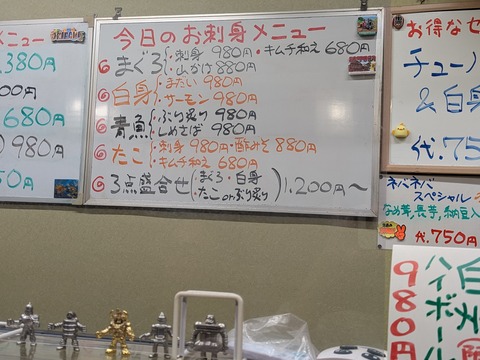 メニュー
,380円
00円
680円
980円
50円
今日のお刺身メニュー
まぐろ ・刺身 980円・キムチ和え 680円
・山かけ 880円
白身 ・まだい 980円
・サーモン 980円
青魚 ・ぶり炙り 980円
・しめさば 980円
たこ ・刺身 980円・酢みそ 880円
・キムチ和え 680円
3点盛合せ (まぐろ・白身
・たこorぶり炙り) 1,200円〜
お得なセ
チュー
&白身
代.75
ネバネバ
スペシャル
なめ茸,長芋,納豆入
代.750円
ハイボール
980円